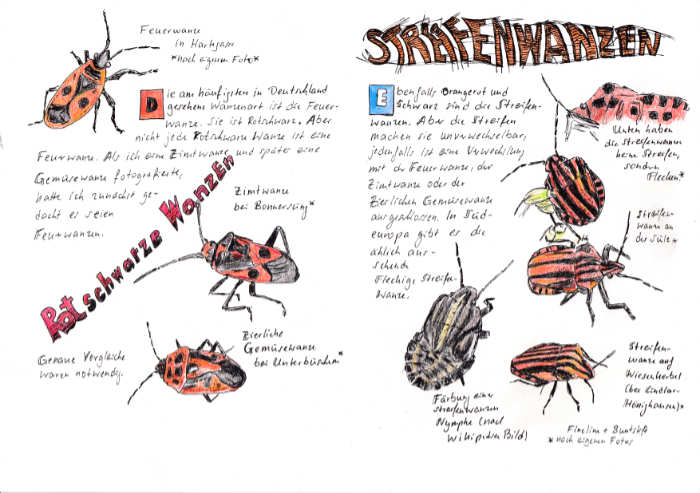 Feuerwanze
in Harhgasse
*nach eigenem Foto*
Die am häufigsten in Deutschland
gesehene Wanzenart ist die Feuer-
wanze. Sie ist Rotschwarz. Aber
nicht jede Rotschwarze Wanze ist eine
Feuerwanze. Als ich eine Zimtwanze und später eine
Gemüsewanze fotografierte,
hatte ich zunächst ge-
dacht es seien
Feuerwanzen.
Rotschwarze Wanzen
Zimtwanze
bei Bonnersüng*
Zierliche
Gemüsewanze
bei Unterbüschem*
Genaue Vergleiche
waren notwendig.
STREIFENWANZEN
Ebenfalls Orangerot und
Schwarz sind die Streifen-
wanzen. Aber die Streifen
machen sie unverwechselbar,
jedenfalls ist eine Verwechslung
mit der Feuerwanze, der
Zimtwanze oder der
Zierlichen Gemüsewanze
ausgeschlossen. In Süd-
europa gibt es die
ählich aus-
sehende
Fleckige Streifen-
Wanze.
Unten haben
die Streifenwanzen
keine Streifen,
sondern
Flecken*
Streifen-
wanze an
der Sülz*
Färbung einer
Streifenwanzen
Nymphe (nach
Wikipedia Bild)
Streifen-
wanze auf
Wiesenkerbel
(bei Lindlar-
Hönighausen)*
Fineline + Buntstift
*nach eigenen Fotos